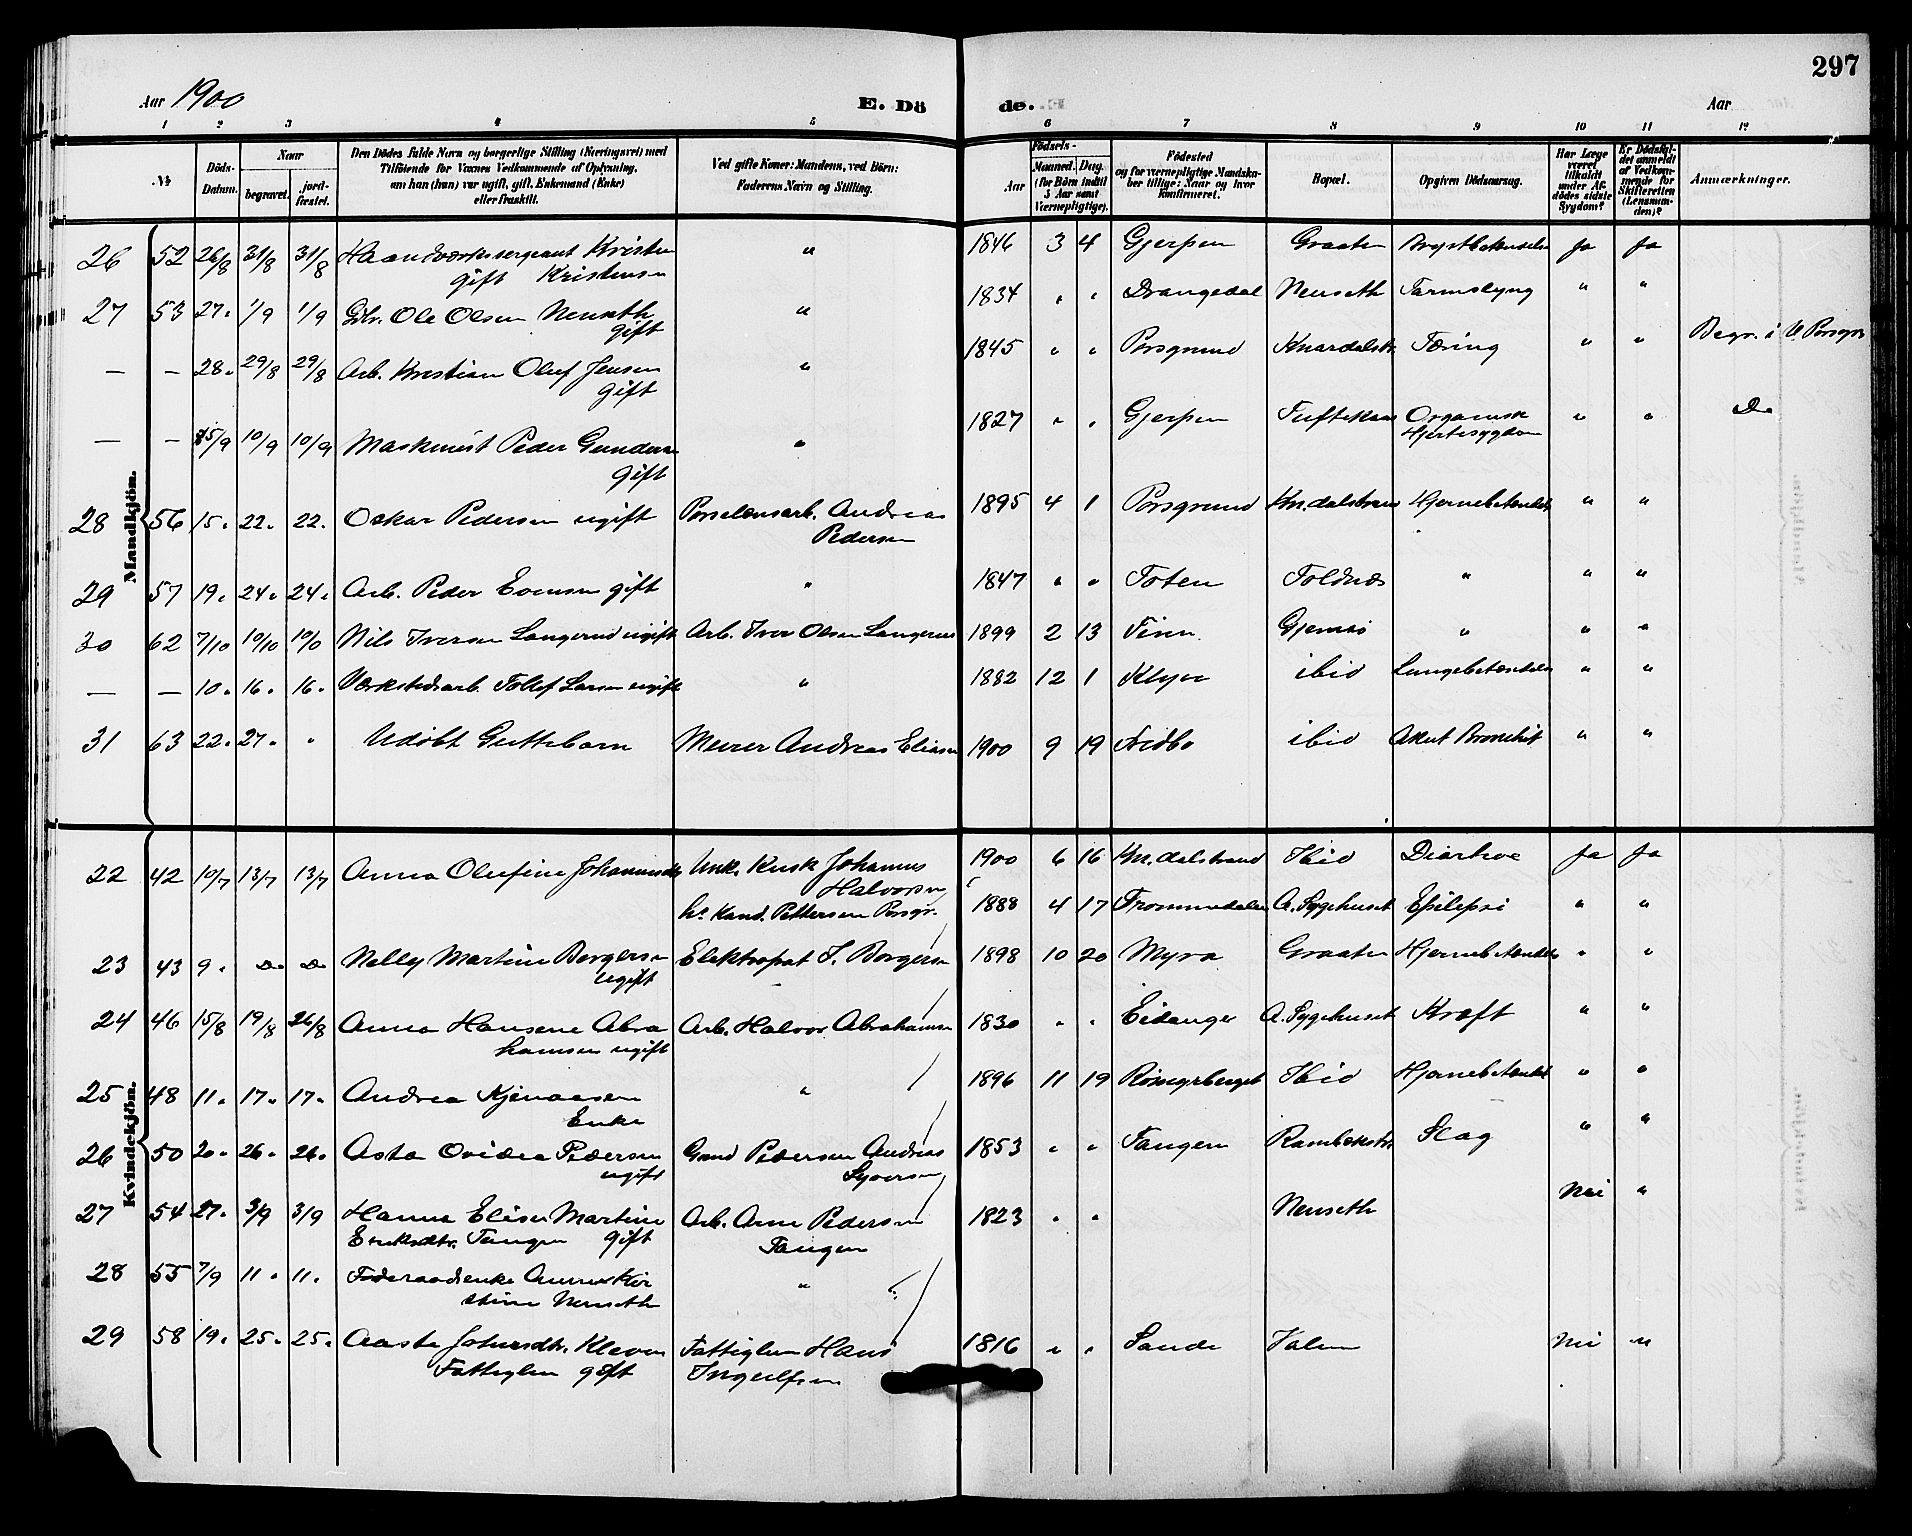 297
Aar 1900
E. Dö
de.
Aar
1 2 3 4 5 6 7 8 9 10 11 12
№
Döds-
Datum.
Naar
begravet.
jord-
fæstet.
Den Dödes fulde Navn og borgerlige Stilling (Næringsvei) med
Tilföiende for Voxnes Vedkommende af Oplysning,
om han (hun) var ugift, gift, Enkemand (Enke)
eller fraskilt.
Ved gifte Koner: Mandens, ved Börn:
Faderens Navn og Stilling.
Födsels-
Aar
Maaned. Dag.
(for Börn indtil
5 Aar samt
Værnepligtige).
Födested
og for værnepligtige Mandska-
ber tillige: Naar og hvor
konfirmeret.
Bopæl.
Opgiven Dödsaarsag.
Har Læge
været
tilkaldt
under Af-
dödes sidste
Sygdom?
Er Dödsfal-
det anmeldt
af Vedkom-
mende for
Skifteretten
(Lensman-
den)?
Anmærkninger.
Mandkjön.
26 52 26/8 31/8 31/8 Haandværkssergeant Kristen " 1846 3 4 Gjerpen Graaten Brystbetændelse Ja Ja
gift Kristensen
27 53 27. 1/9 1/9 Gbr. Ole Olsen Nenseth " 1834 " " Drangedal Nenseth Tarmslyng " "
gift
— — 28. 29/8 29/8 Arb. Kristian Oluf Jensen " 1845 " " Porsgrund Knardalstr. Tæring " " Begr. i V. Porsgr.
gift
— — 5/9 10/9 10/9 Maskinist Peder Gundersen " 1827 " " Gjerpen Tuftekaas Organisk " " Do
gift Hjertesygdom
28 56 15. 22. 22. Oskar Pedersen ugift Porselænsarb. Andreas 1895 4 1 Porsgrund Kn.dalstrand Hjernebetændelse " "
Pedersen
29 57 19. 24. 24. Arb. Peder Evensen gift " 1847 " " Toten Toldnæs " " "
30 62 7/10 10/10 10/10 Nils Iversen Langerud ugift Arb. Iver Olsen Langerud 1899 2 13 Tinn Gjemsö " " "
— — 10. 16. 16. Værkstedsarb. Tollef Larsen ugift " 1882 12 1 Klyve ibid Lungebetændelse " "
31 63 22. 27. " Udöbt Guttebarn Murer Andreas Eliasen 1900 9 19 ibid Akut Bronchit " "
Kvindekjön.
22 42 10/7 13/7 13/7 Anna Olufine Johannesdtr. Unk. Kusk Johannes 1900 6 16 Kn.dalstrand Ibid Diarhoe Ja Ja
Halvorsen
hs Kand. Pettersen Porsgr. 1888 4 17 Trommedalen A. Sygehuset Epilepsi " "
23 43 9. Do Do Nelly Martine Borgersen Elektropat J. Borgersen 1898 10 20 Myra Graaten Hjernebetændelse " "
ugift
24 46 15/8 19/8 26/8 Anna Hansene Abra Arb. Halvor Abrahamsen 1830 " " Eidanger A. Sygehuset Kræft " "
hamsen ugift
25 48 11. 17. 17. Andrea Kjenaasen " 1896 11 19 Ibid Hjernebetændelse " "
Enke
26 50 20. 26. 26. Asta Ovidia Pedersen Pedersen Andreas 1853 " " Tangen Rambekstr. Slag " "
ugift Syversen
27 54 27. 3/9 3/9 Hanna Elise Martine Arb. Arne Pedersen 1823 " " Nenseth Nei "
Eriksdtr. Tangen gift Tangen
28 55 7/9 11. 11. Föderaadsenke Anne Kir "
stine Nenseth
29 58 19. 25. 25. Aaste Johnsdtr. Kleven Fattiglem Hans 1816 " " Sande Valen Nei "
Fattiglem gift Ingulfsen